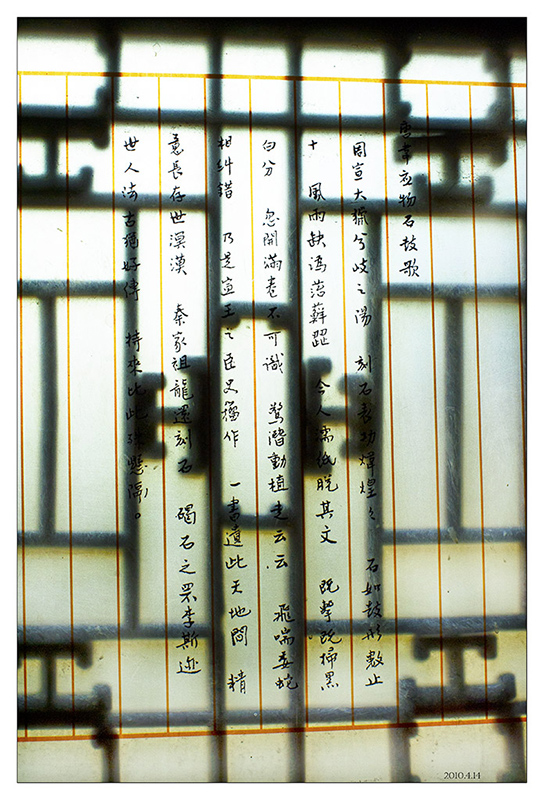 唐韋应物石鼓歌
周宣大獵兮岐之陽 刻石表功煒煌々 石如鼓形數止
十 風雨缺訛苔蘚澀 今人濡紙脫其文 既擊既掃黑
白分 忽開滿卷不可識 驚潛動植走云云 飛喘委蛇
相糾錯 乃是宣王之臣史籀作 一書遺此天地間 精
意長存世溟漠 秦家祖龍還刻石 碣石之罘李斯迹
世人法古猶好傳 持來比此殊懸隔。
2010.4.14